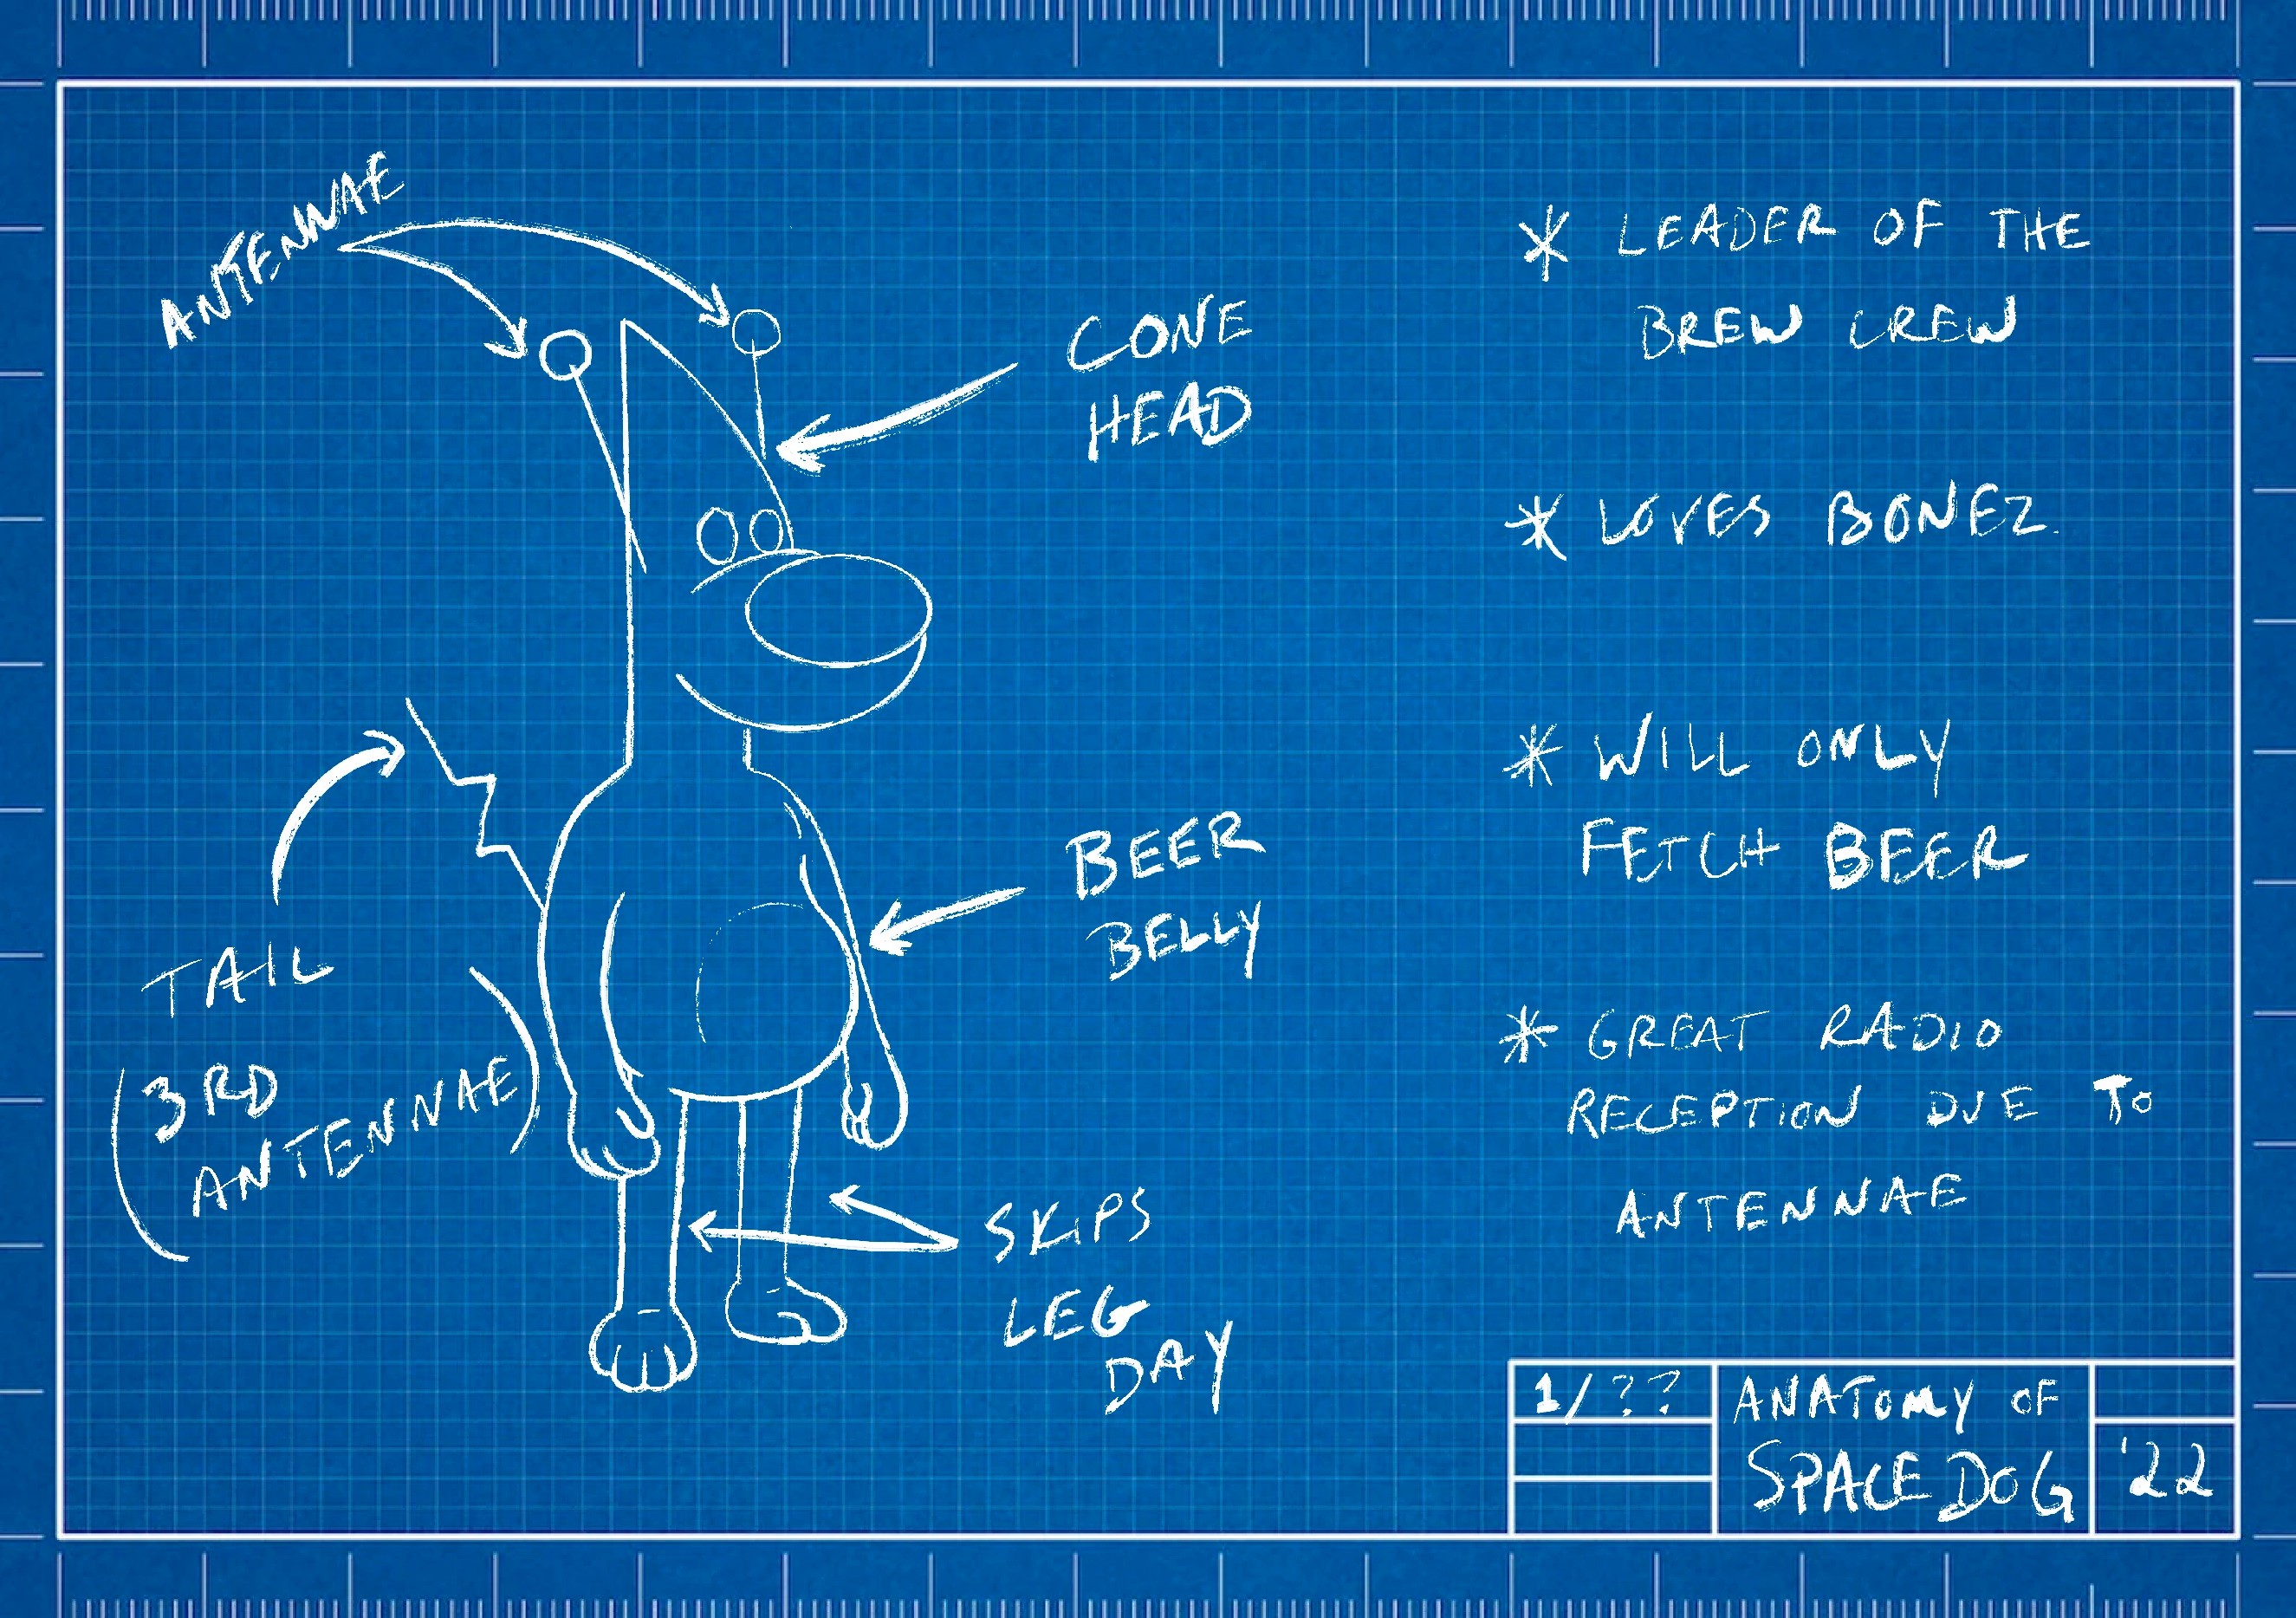 ANTENNAE
CONE
HEAD
BEER
BELLY
TAIL
(3RD
ANTENNAE)
SKIPS
LEG
DAY
* LEADER OF THE
BREW CREW
* LOVES BONEZ.
* WILL ONLY
FETCH BEER
* GREAT RADIO
RECEPTION DUE TO
ANTENNAE
1/??
ANATOMY OF
SPACE DOG
'22